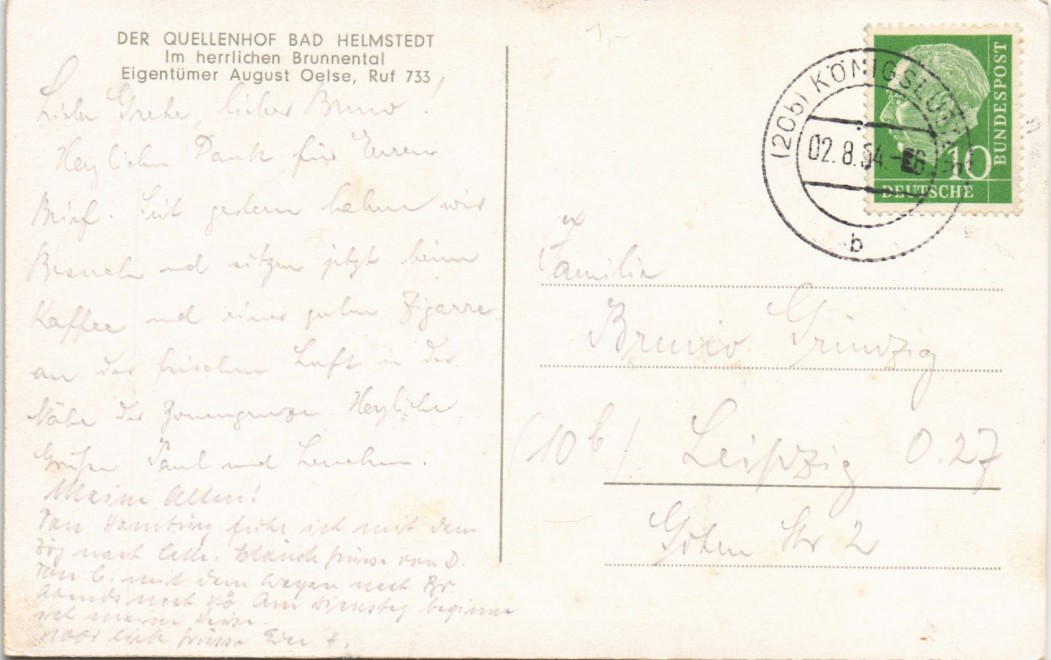 DER QUELLENHOF BAD HELMSTEDT
Im herrlichen Brunnental
Eigentümer August Oelse, Ruf 733
1,-
Liebe Grete, lieber Bruno!
Herzlichen Dank für Euren
Brief. Seit gestern haben wir
Besuch und sitzen jetzt beim
Kaffee und einer guten Zigarre
an der frischen Luft in der
Nähe der Zonengrenze. Herzliche
Grüße Paul und Lenchen.
Meine Alten!
Von Hamburg fuhr ich mit dem
Zug nach
mit dem Wagen nach Br.
Abends nach Kö. Am Dienstag beginne
ich meine
(20b) KÖNIGSLUTTER
02.8.54.
b
10
DEUTSCHE
BUNDESPOST
Familie
Bruno Grünzig
(10b) Leipzig O.27
Goten Str 2